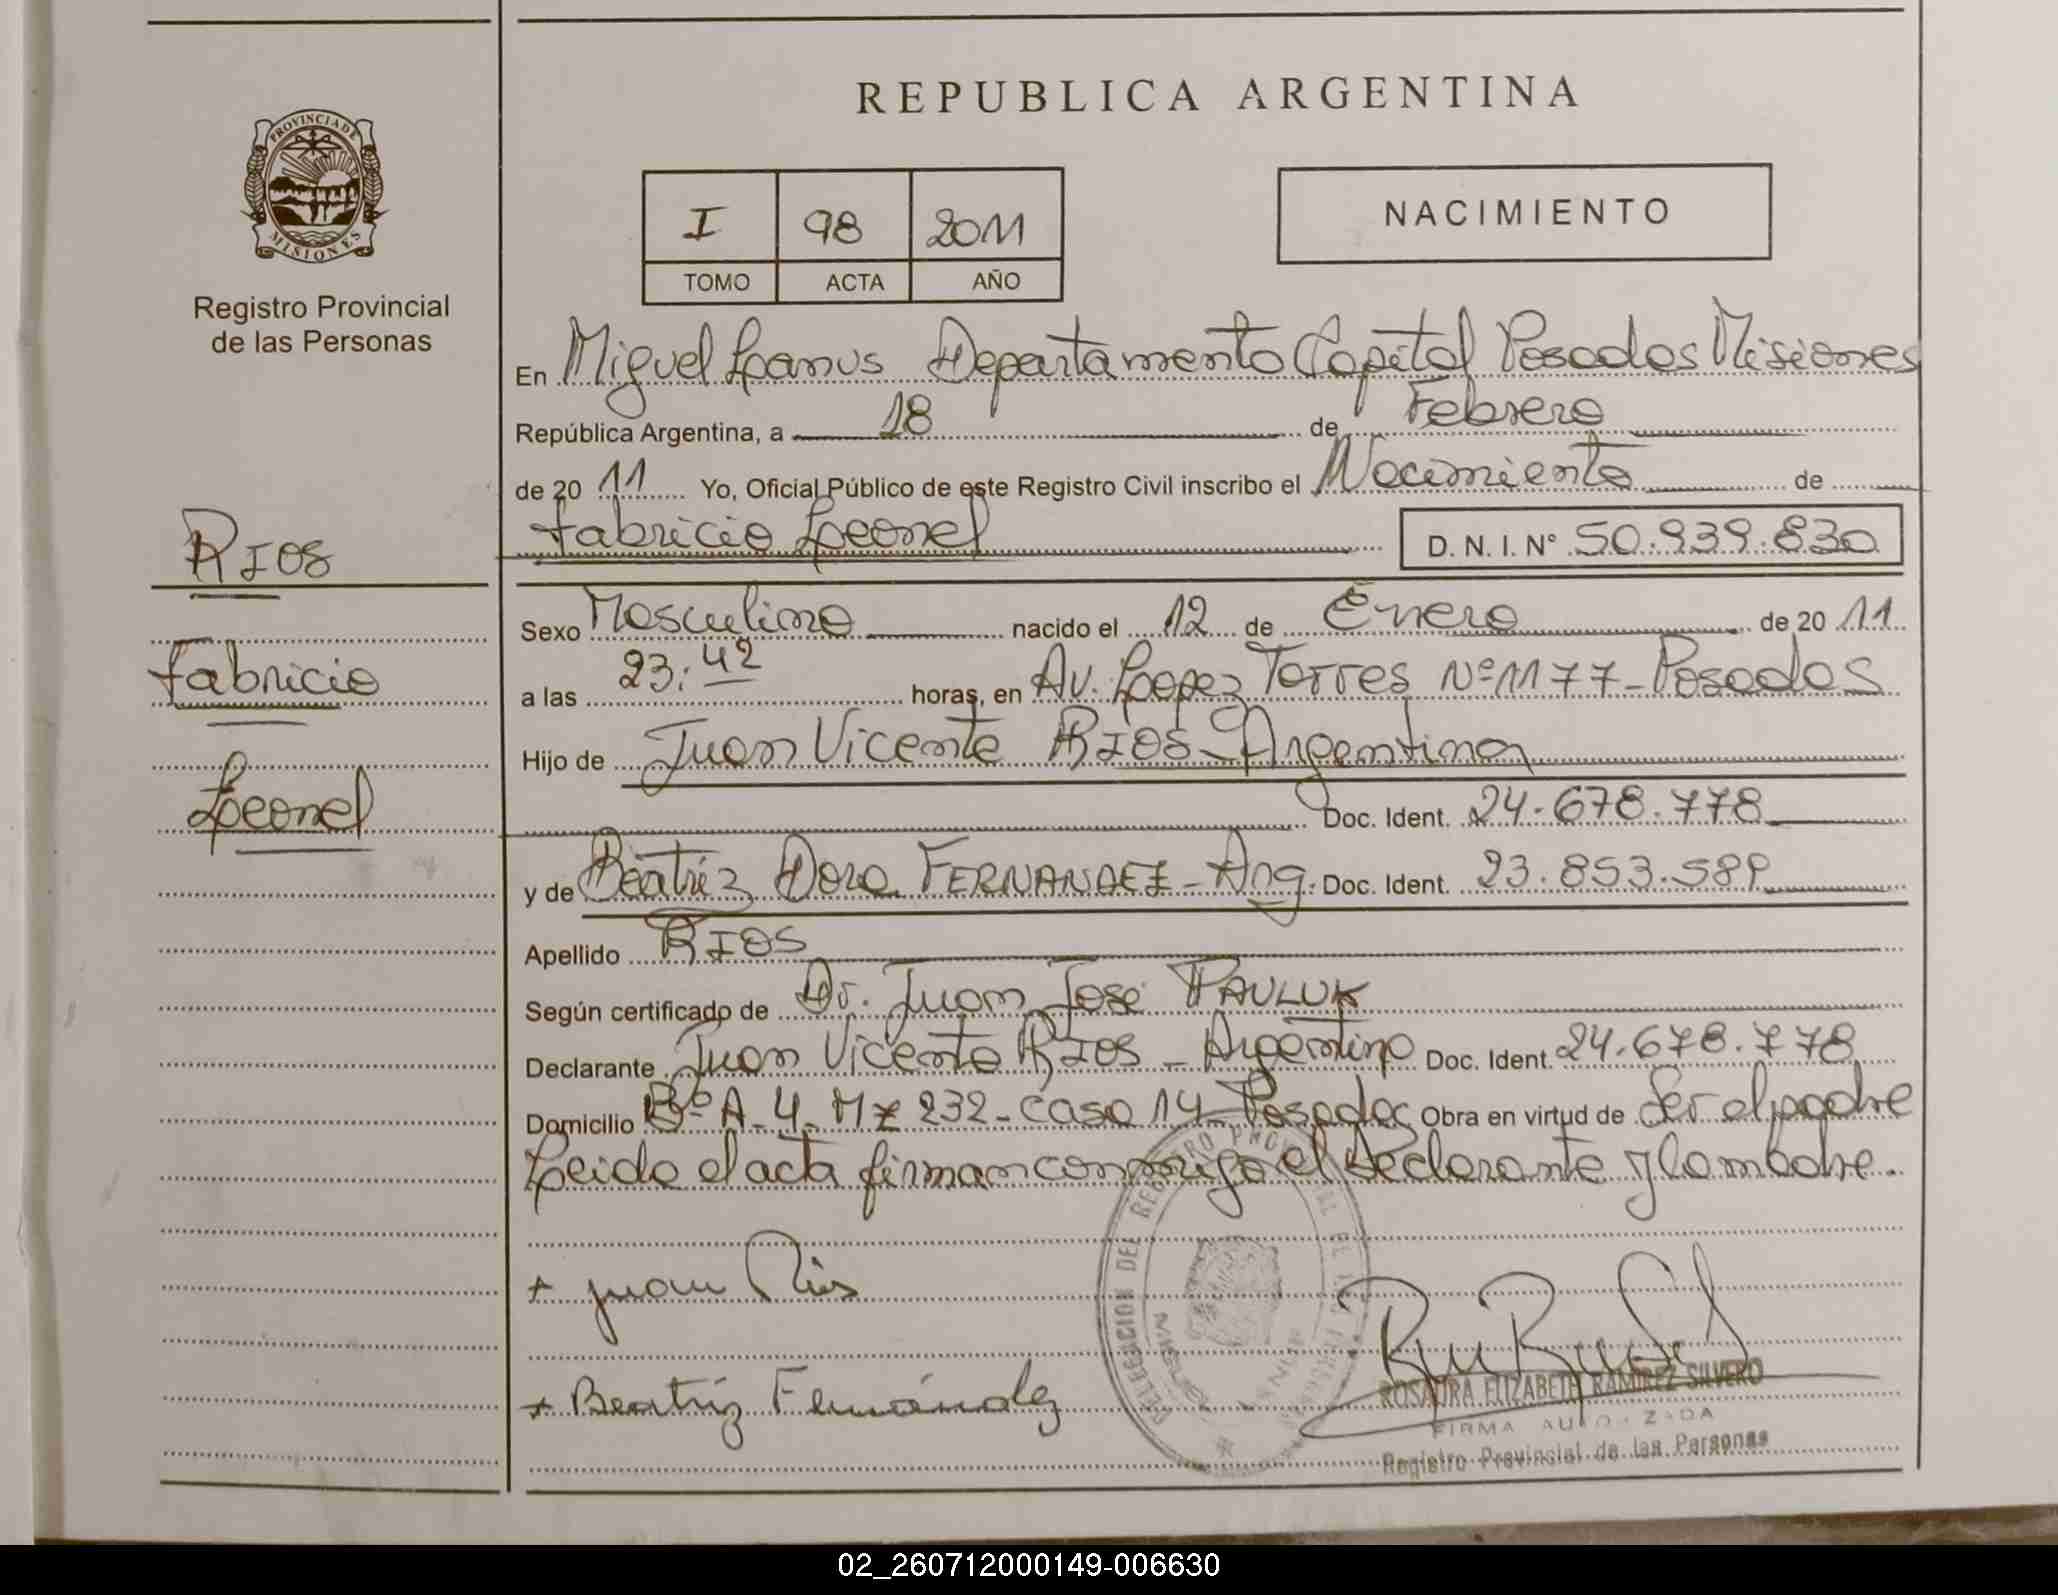 REPUBLICA ARGENTINA
PROVINCIA DE MISIONES
Registro Provincial
de las Personas
I 98 2011
TOMO ACTA AÑO
NACIMIENTO
En Miguel Lanus Departamento Capital Posadas Misiones
República Argentina, a 18 de Febrero
de 20 11 Yo, Oficial Público de este Registro Civil inscribo el Nacimiento de
Fabricio Leonel D. N. I. N° 50.939.830
RIOS
Fabricio
Leonel
Sexo Masculino nacido el 12 de Enero de 20 11
a las 23:42 horas, en Av. Lopez Torres Nº 1177 - Posadas
Hijo de Juan Vicente RIOS - Argentina
Doc. Ident. 24.678.778
y de Beatriz Dora FERNANDEZ - Arg. Doc. Ident. 23.853.589
Apellido RIOS
Según certificado de Dr. Juan José PAULUK
Declarante Juan Vicente RIOS - Argentino Doc. Ident. 24.678.778
Domicilio Bº A-4-Mz 232-casa 14-Posadas Obra en virtud de Ser el padre
Leida el acta firman conmigo el Declarante y la madre.
+ Juan Rios
+ Beatriz Fernández
DELEGACION DEL REGISTRO PROVINCIAL DE LAS PERSONAS
MISIONES
ROSAURA ELIZABETH RAMIREZ SILVERO
FIRMA AUTORIZADA
Registro Provincial de las Personas
02_260712000149-006630